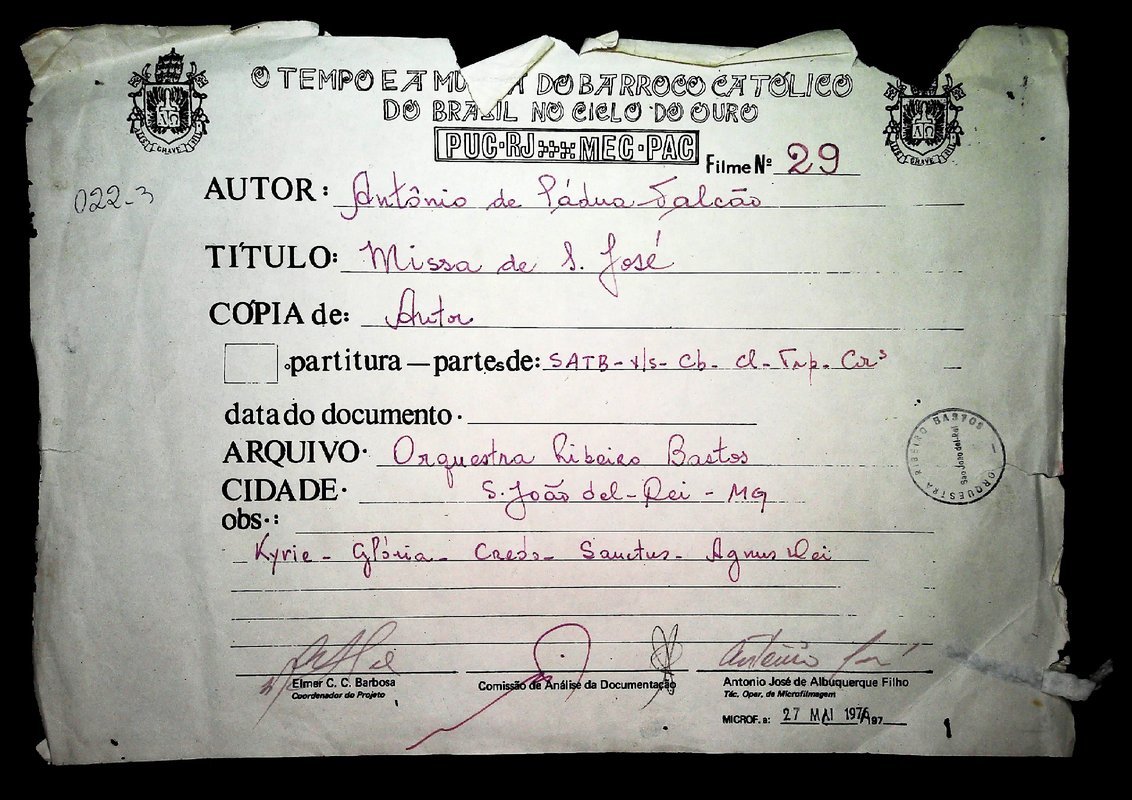 O TEMPO E A MU A DO BARROCO CATÓLICO
DO BRASIL NO CICLO DO OURO
PUC·RJ MEC·PAC
Filme Nº 29
022-3
AUTOR: Antônio de Pádua Falcão
TÍTULO: Missa de S. José
CÓPIA de: Autor
partitura — partes de: SATB - v/s - Cb - Cl - Trp. Cor
data do documento
ARQUIVO· Orquestra Ribeiro Bastos
CIDADE· S. João del-Rei - MG
obs·:
Kyrie - Glória - Credo - Sanctus - Agnus Dei
ORQUESTRA RIBEIRO BASTOS
São João del-Rei
Elmer C. C. Barbosa
Coordenador do Projeto
Comissão de Análise da Documentação
Antonio José de Albuquerque Filho
Téc. Oper. de Microfilmagem
MICROF. a: 27 MAI 1976 197
1